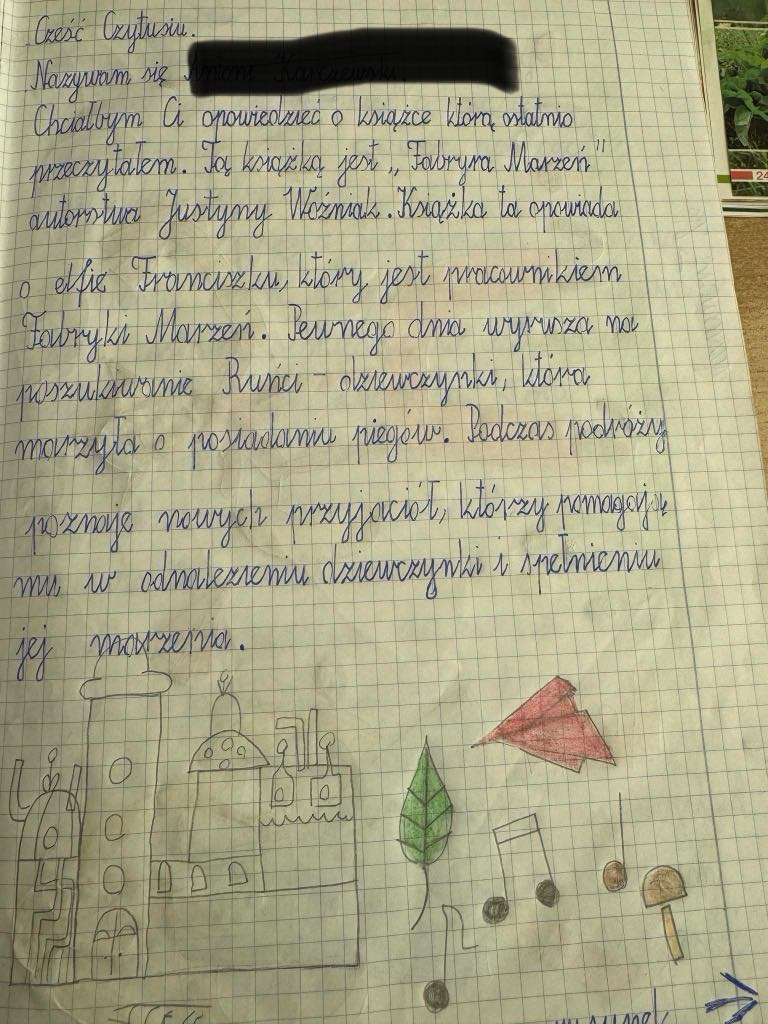 Cześć Czytusiu.
Nazywam się
Chciałbym Ci opowiedzieć o książce którą ostatnio
przeczytałem. Tą książką jest „Fabryra Marzeń"
autorstwa Justyny Woźniak. Książka ta opowiada
o elfie Franciszku, który jest pracownikiem
Fabryki Marzeń. Pewnego dnia wyrusza na
poszukiwanie Ruńci - dziewczynki, która
marzyła o posiadaniu piegów. Podczas podróży
poznaje nowych przyjaciół, którzy pomagają
mu w odnalezieniu dziewczynki i spełnieniu
jej marzenia.
24